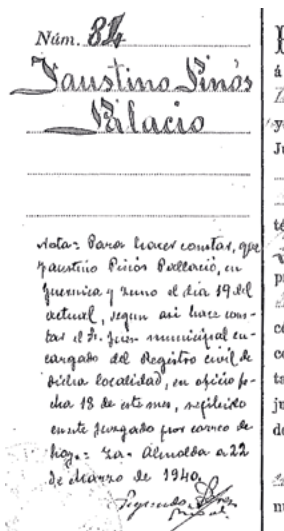 Núm. 84
Faustino Pinós
Pilacio
Nota = Para hacer constar, que
Faustino Pinós Pallació, en
Guernica y Luno el día 19 del
actual, segun asi hace cons-
tar el Sr. Juez municipal en-
cargado del Registro civil de
dicha localidad, en oficio fe-
cha 18 de este mes, recibido
en este Juzgado por correo de
hoy.= La Almolda a 22
de Marzo de 1940.